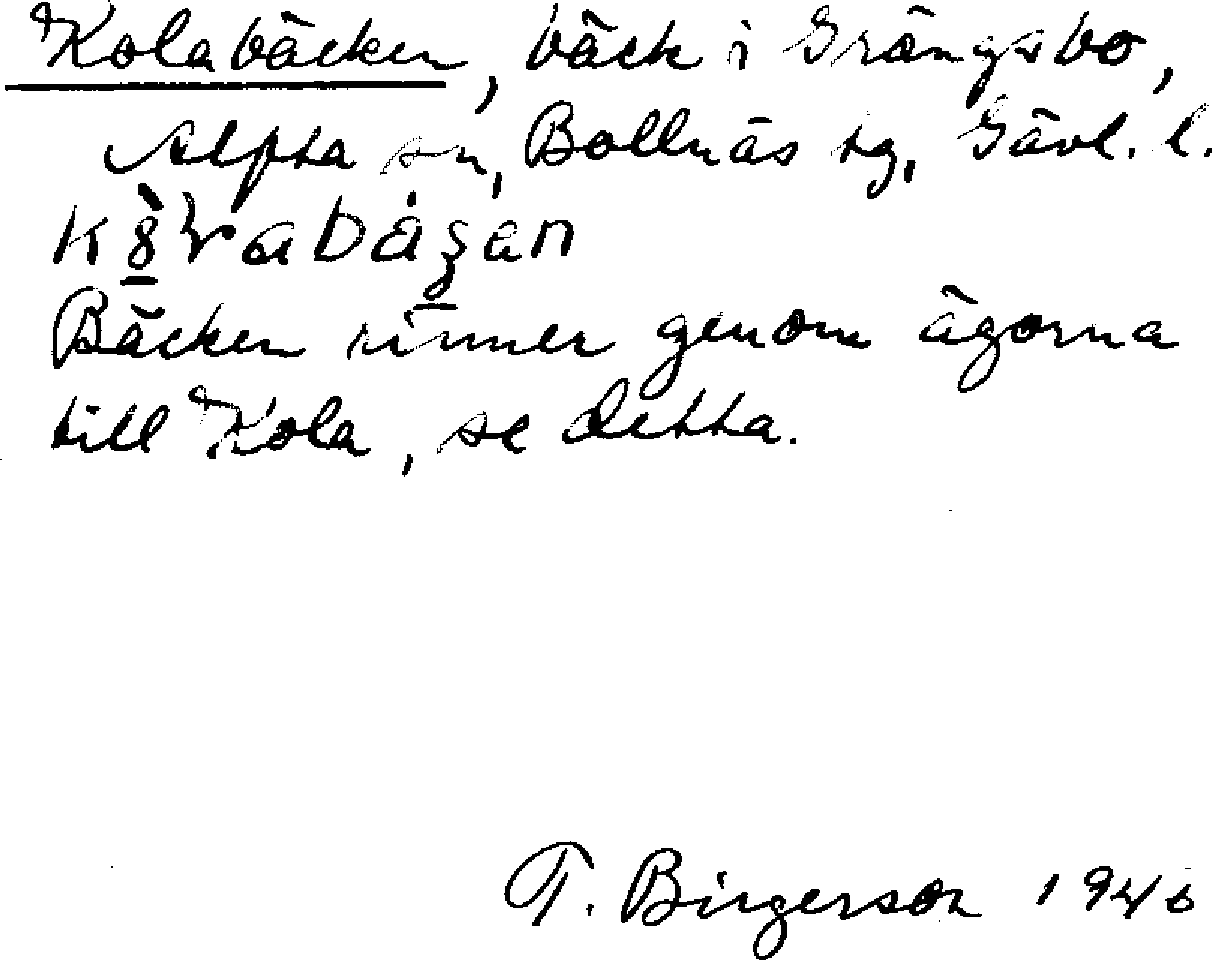 Kolabäcken, bäck i Grängsbo,
Alfta sn, Bollnäs tg, Gävl. l.
Bäcken rinner genom ägorna
till Kola, se detta.
T. Birgerson 1946